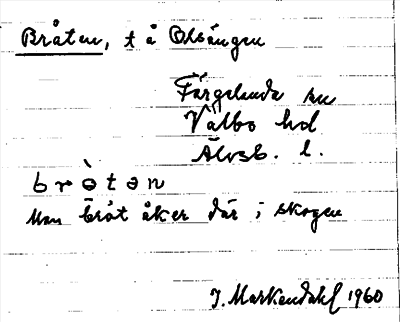 Bråten, t å Olsängen
Färgelanda sn
Valbo hd
Älvsb. l.
brò̀tən
Man bröt åker där i skogen
J. Markendahl 1960